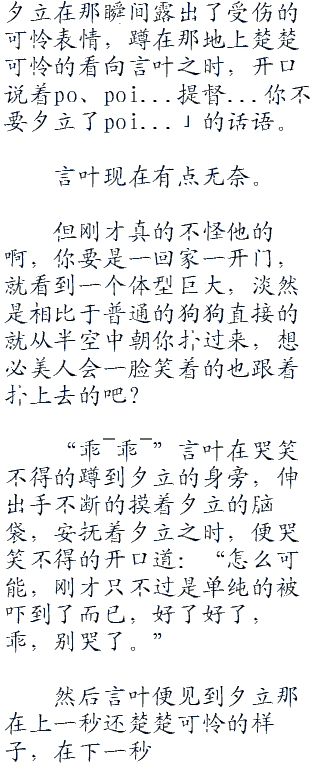 夕立在那瞬间露出了受伤的
可怜表情，蹲在那地上楚楚
可怜的看向言叶之时，开口
说着po、poi...提督...你不
要夕立了poi...」的话语。
言叶现在有点无奈。
但刚才真的不怪他的
啊，你要是一回家一开门，
就看到一个体型巨大，淡然
是相比于普通的狗狗直接的
就从半空中朝你扑过来，想
必美人会一脸笑着的也跟着
扑上去的吧？
“乖¯乖¯”言叶在哭笑
不得的蹲到夕立的身旁，伸
出手不断的摸着夕立的脑
袋，安抚着夕立之时，便哭
笑不得的开口道：“怎么可
能，刚才只不过是单纯的被
吓到了而已，好了好了，
乖，别哭了。”
然后言叶便见到夕立那
在上一秒还楚楚可怜的样
子，在下一秒